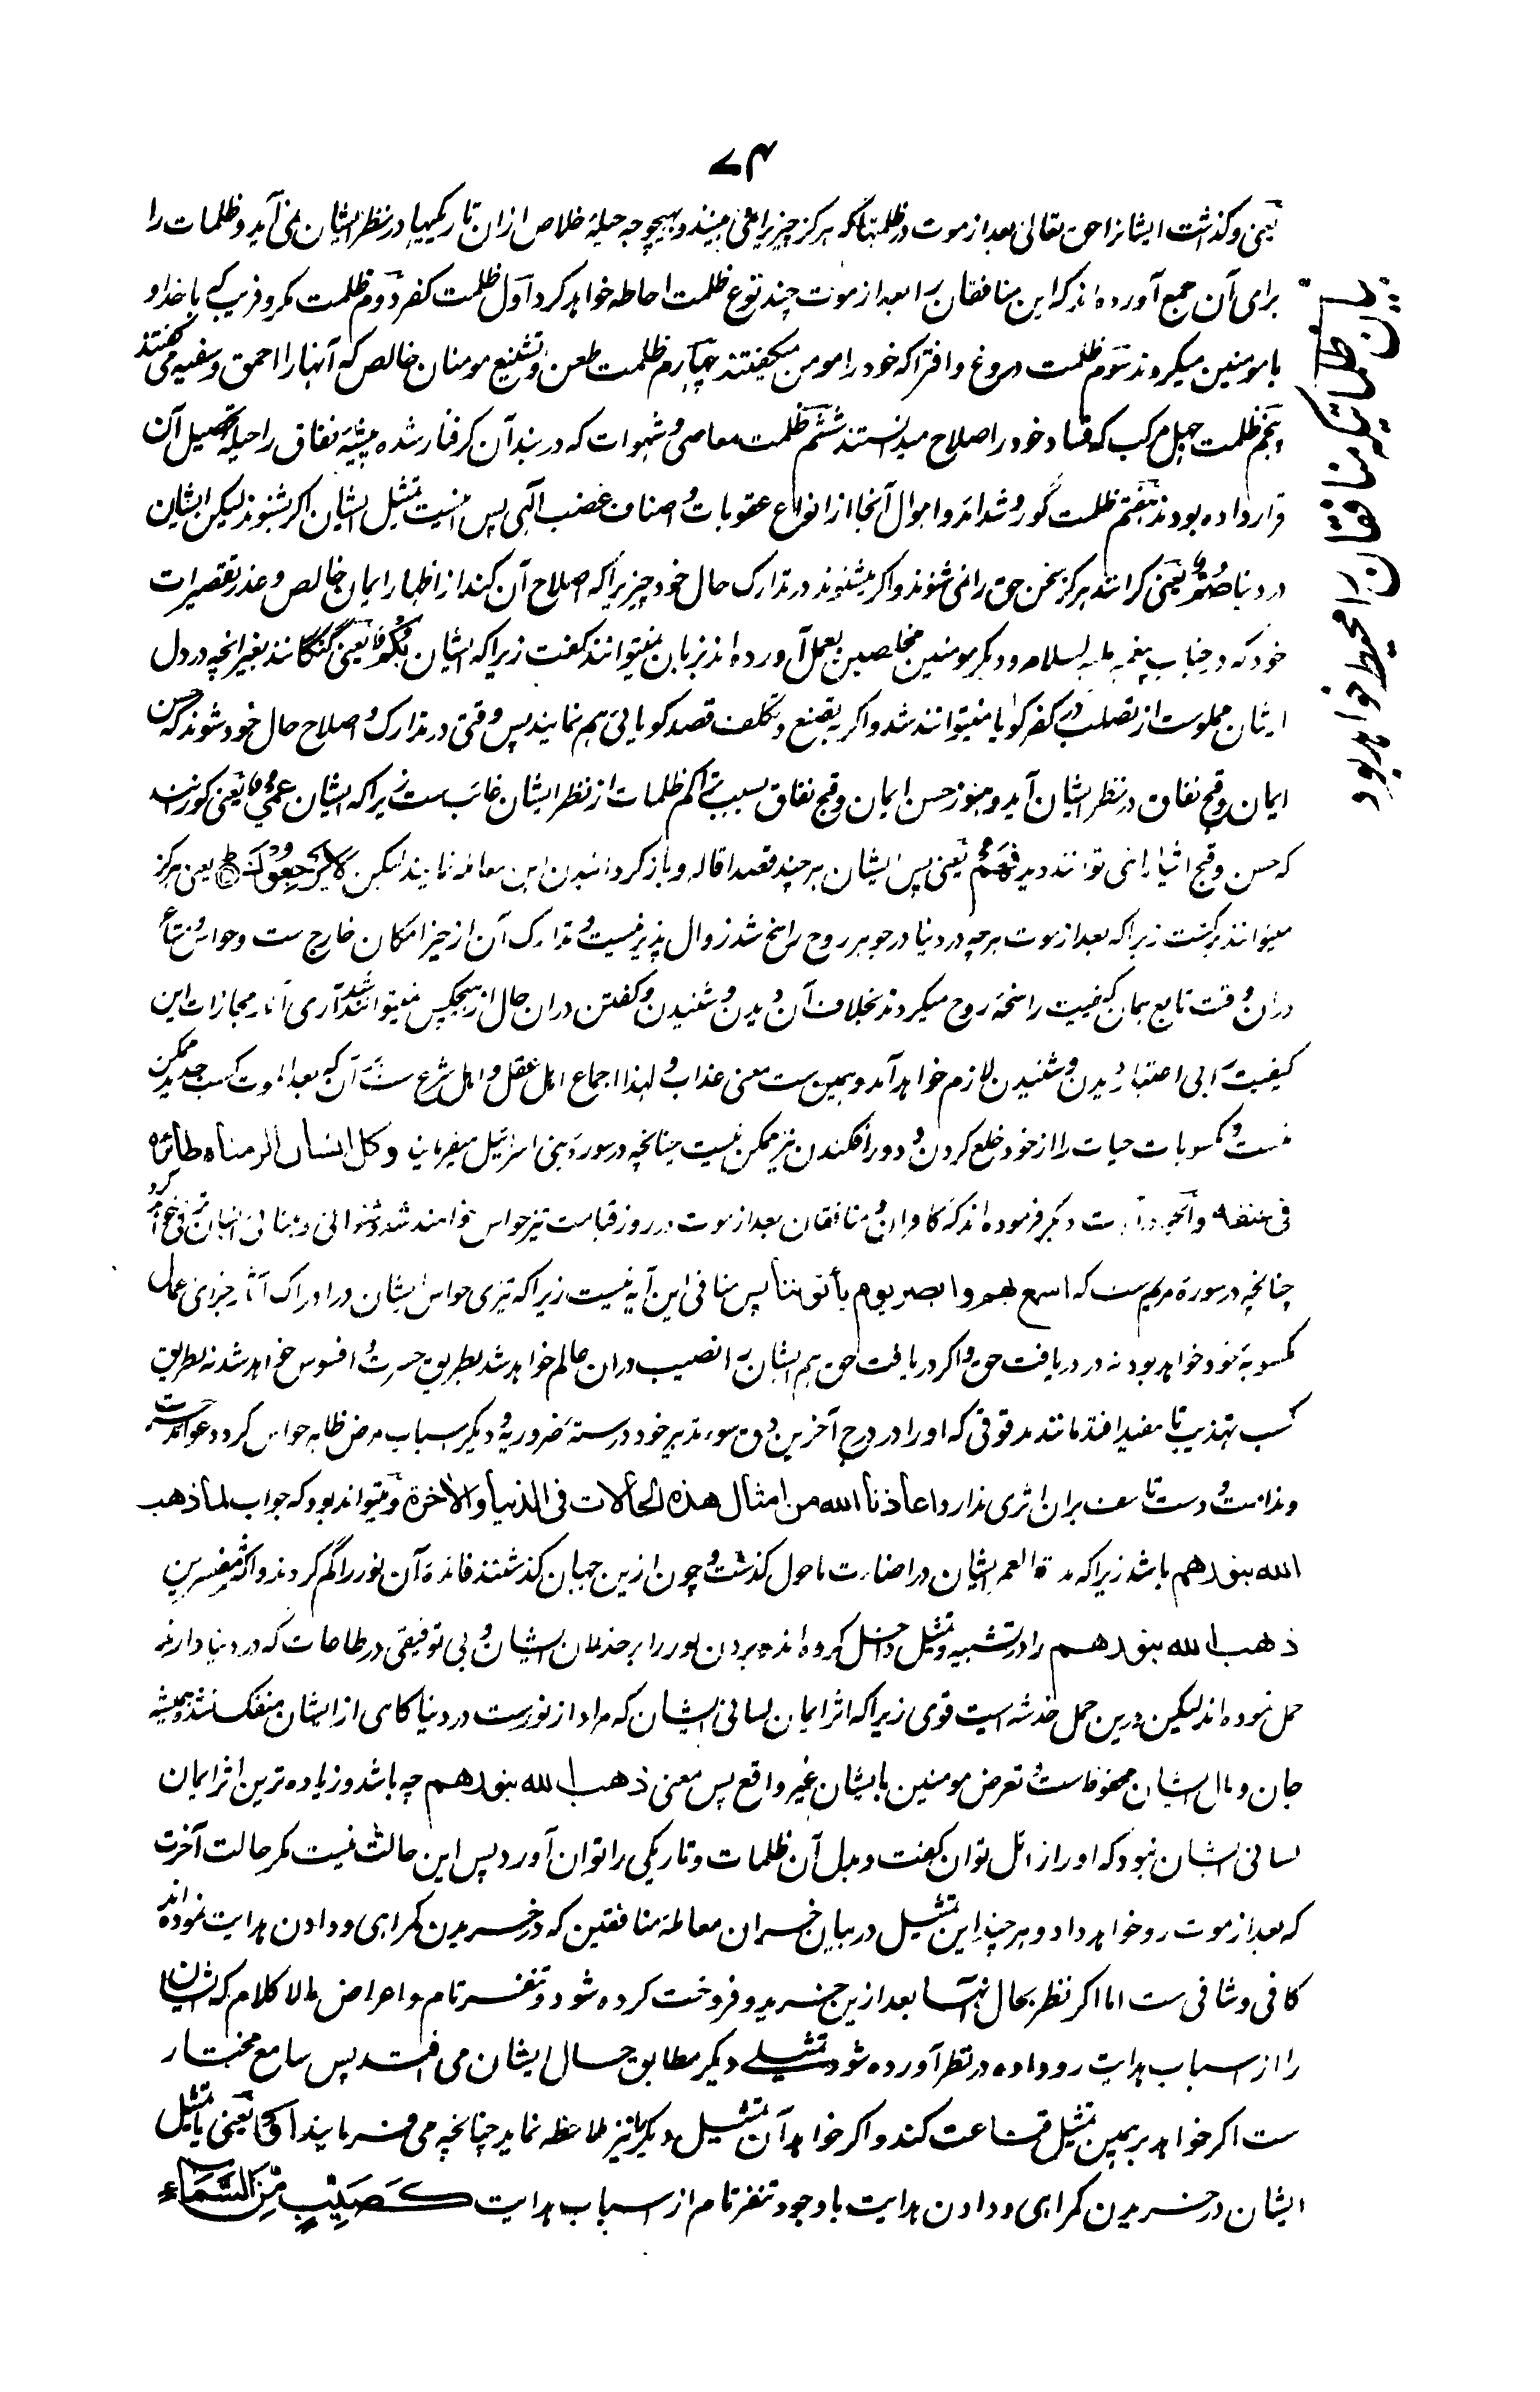 ۷۴
یعنی وکذاشت ایشانرا حق تعالی بعد از موت در ظلمتها که هرکز چیز یرا نمی بینند و بهیچوجه حیلۀ خلاص ازان تاریکیها در نظر ایشان نمی آید و ظلمات را
برای آن جمع آورده اند که این منافقان را بعد از موت چند نوع ظلمت احاطه خواهد کرد اول ظلمت کفر دوم ظلمت مکر و فریب که با خدا و
با مومنین میکردند سوم ظلمت دروغ و افترا که خود را مومن میکفتند چهارم ظلمت طعن و تشنیع مومنان خالص که آنها را احمق و سفیه می کفتند
پنجم ظلمت جهل مرکب که فساد خود را صلاح میدانستند ششم ظلمت معاصی و شهوات که در بند آن کرفتار شده پیشۀ نفاق را حیلۀ تحصیل آن
قرار داده بودند هفتم ظلمت گور و شداید و اهوال آنجا از انواع عقوبات و اصناف غضب الهی پس اینست تمثیل ایشان اکر بشنوند لیکن ایشان
در دنیا صُمٌّ یعنی کرانند هرکز سخن حق را نمی شنوند و اکر میشنوند در تدارک حال خود چیزیرا که اصلاح آن کند از اظهار ایمان خالص و عذر تقصیرات
خود که در جناب پیغمبر علیه السلام و دیکر مومنین مخلصین بعمل آورده اند بزبان نمیتوانند کفت زیرا که ایشان بُکْمٌ یعنی گنگانند بغیر انچه در دل
ایشان مملوست از تصلب در کفر کویا نمیتوانند شد و اکر به تصنع و تکلف قصد کویائی هم نمایند پس وقتی در تدارک و اصلاح حال خود شوند که حسن
ایمان و قبح نفاق در نظر ایشان آید و هنوز حسن ایمان و قبح نفاق بسبب تراکم ظلمات از نظر ایشان غائب ست زیرا که ایشان عُمْیٌ یعنی کورانند
که حسن و قبح اشیا را نمی توانند دید فَهُمْ یعنی پس ایشان هر چند قصد اقاله و باز کردانیدن این معامله نمایند لیکن لَا یَرْجِعُوْنَ یعنی هرکز
نمیتوانند برکشت زیرا که بعد از موت هرچه در دنیا در جوهر روح راسخ شد زوال پذیر نیست و تدارک آن از حیز امکان خارج ست و حواس و مشاعر
دران وقت تابع همان کیفیت راسخۀ روح میکردند بخلاف آن دیدن و شنیدن و کفتن دران حال از هیچکس نمیتواند شد آری آثار مجازات این
کیفیت را بی اختیار دیدن و شنیدن لازم خواهد آمد و همین ست معنی عذاب و لهذا اجماع اهل عقل و اهل شرع ست آنکه بعد از موت کسب جدید ممکن
نیست و مکسوبات حیات را از خود خلع کردن و دور افکندن نیز ممکن نیست چنانچه در سورۀ بنی اسرائیل میفرماید و کل انسان الزمناه طائره
فی عنقه و آنچه در آیت دیکر فرموده اند که کافران و منافقان بعد از موت در روز قیامت تیز حواس خواهند شد و شنوائی و بینائی ایشان ترقی خواهد کرد
چنانچه در سورۀ مریم ست که اسمع بهم و ابصر یوم یأتوننا پس منافی این آیه نیست زیرا که تیزی حواس ایشان در ادراک آثار جزای عمل
مکسوبۀ خود خواهد بود نه در دریافت حق و اکر دریافت حق هم ایشان را نصیب دران عالم خواهد شد بطریق حسرت و افسوس خواهد شد نه بطریق
کسب تهذیب تا مفید افتد مانند مدقوقی که او را در درجۀ آخرین دق سوء تدبیر خود در ستۀ ضروریه و دیکر اسباب مرض ظاهر حواس کردد و غیر از حسرت
و ندامت و دست تاسف بران اثری ندارد اعاذنا الله من امثال هذه الحالات فی الدنیا والاخرة و میتواند بود که جواب لما ذهب
الله بنورهم باشد زیرا که مدة العمر ایشان در اضاءت ما حول کذشت و چون ازین جهان کذشتند فائدۀ آن نور را گم کردند و اکثر مفسرین
ذهب الله بنورهم را در تشبیه و تمثیل داخل کرده اند و بردن نور را بر خذلان ایشان و بی توفیقی در طاعات که در دنیا دارند
حمل نموده اند لیکن درین حمل خدشه ایست قوی زیرا که اثر ایمان لسانی ایشان که مراد از نورست در دنیا کاهی از ایشان منفک نشد همیشه
جان و مال ایشان محفوظ ست و تعرض مومنین با یشان غیر واقع پس معنی ذهب الله بنورهم چه باشد و زیاده ترین اثر ایمان
لسانی ایشان نبود که او را زائل توان کفت و بدل آن ظلمات و تاریکی را توان آورد پس این حالت نیست مکر حالت آخرت
که بعد از موت رو خواهد داد و هر چند این تمثیل در بیان خسران معاملۀ منافقین که در خریدن کمراهی و دادن هدایت نموده اند
کافی و شافی ست اما اکر نظر بحال آنها بعد ازین خرید و فروخت کرده شود و تنفر تام و اعراض مالا کلام که ایشان
را از اسباب هدایت رو داده در نظر آورده شود تمثیلے دیکر مطابق حال ایشان می افتد پس سامع مختار
ست اکر خواهد برهمین تمثیل قناعت کند و اکر خواهد آن تمثیل دیکر را نیز ملاحظه نماید چنانچه می فرمایند اَوْ یعنی یا تمثیل
ایشان در خریدن کمراهی و دادن هدایت با وجود تنفر تام از اسباب هدایت كَصَيِّبٍ مِّنَ السَّمَاءِ
بیان ظلماتیکه منافقان را محیط خواهد بود